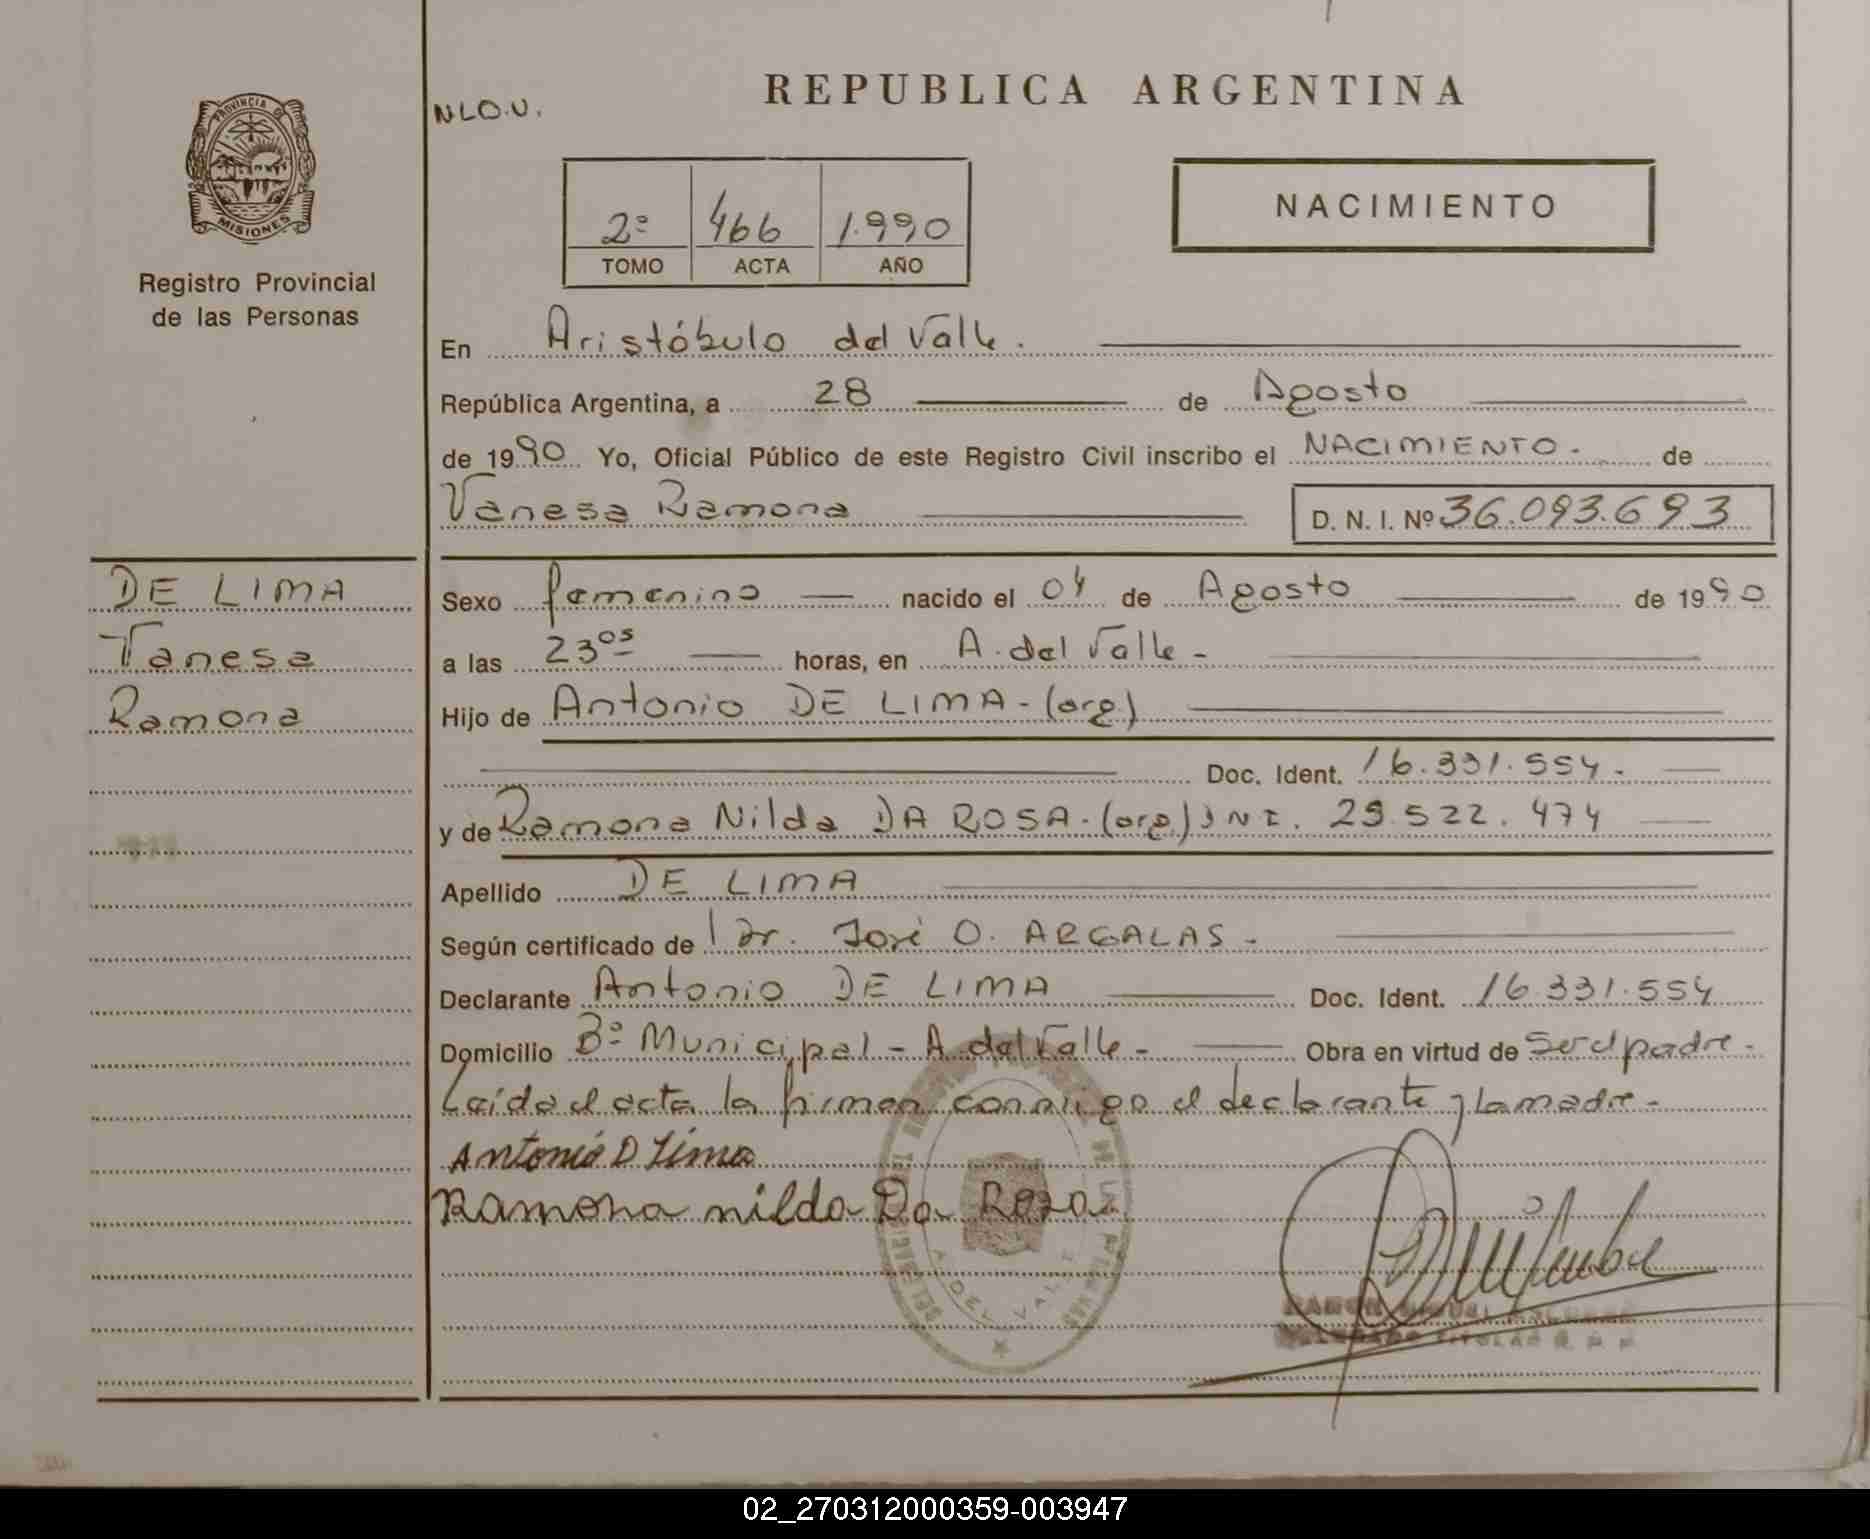 PROVINCIA D
MISIONES
Registro Provincial
de las Personas
DE LIMA
Vanesa
Ramona
N.L.O.V.
REPUBLICA ARGENTINA
2º 466 1.990
TOMO ACTA AÑO
NACIMIENTO
En Aristóbulo del Valle.
República Argentina, a 28 de Agosto
de 1990 Yo, Oficial Público de este Registro Civil inscribo el NACIMIENTO. de
Vanesa Ramona D. N. I. Nº 36.093.693
Sexo femenino nacido el 04 de Agosto de 1990
a las 23 os horas, en A. del Valle -
Hijo de Antonio DE LIMA - (arg)
Doc. Ident. 16.331.554.
y de Ramona Nilda DA ROSA. (arg.) DNI. 29.522.474
Apellido DE LIMA
Según certificado de Dr. José O. ARGALAS -
Declarante Antonio DE LIMA Doc. Ident. 16.331.554
Domicilio Bº Municipal - A. del Valle - Obra en virtud de Ser el padre -
Leída el acta la firman conmigo el declarante y la madre -
Antonio D Lima
Ramona nilda Da Roza
A. DEL VALLE
02_270312000359-003947